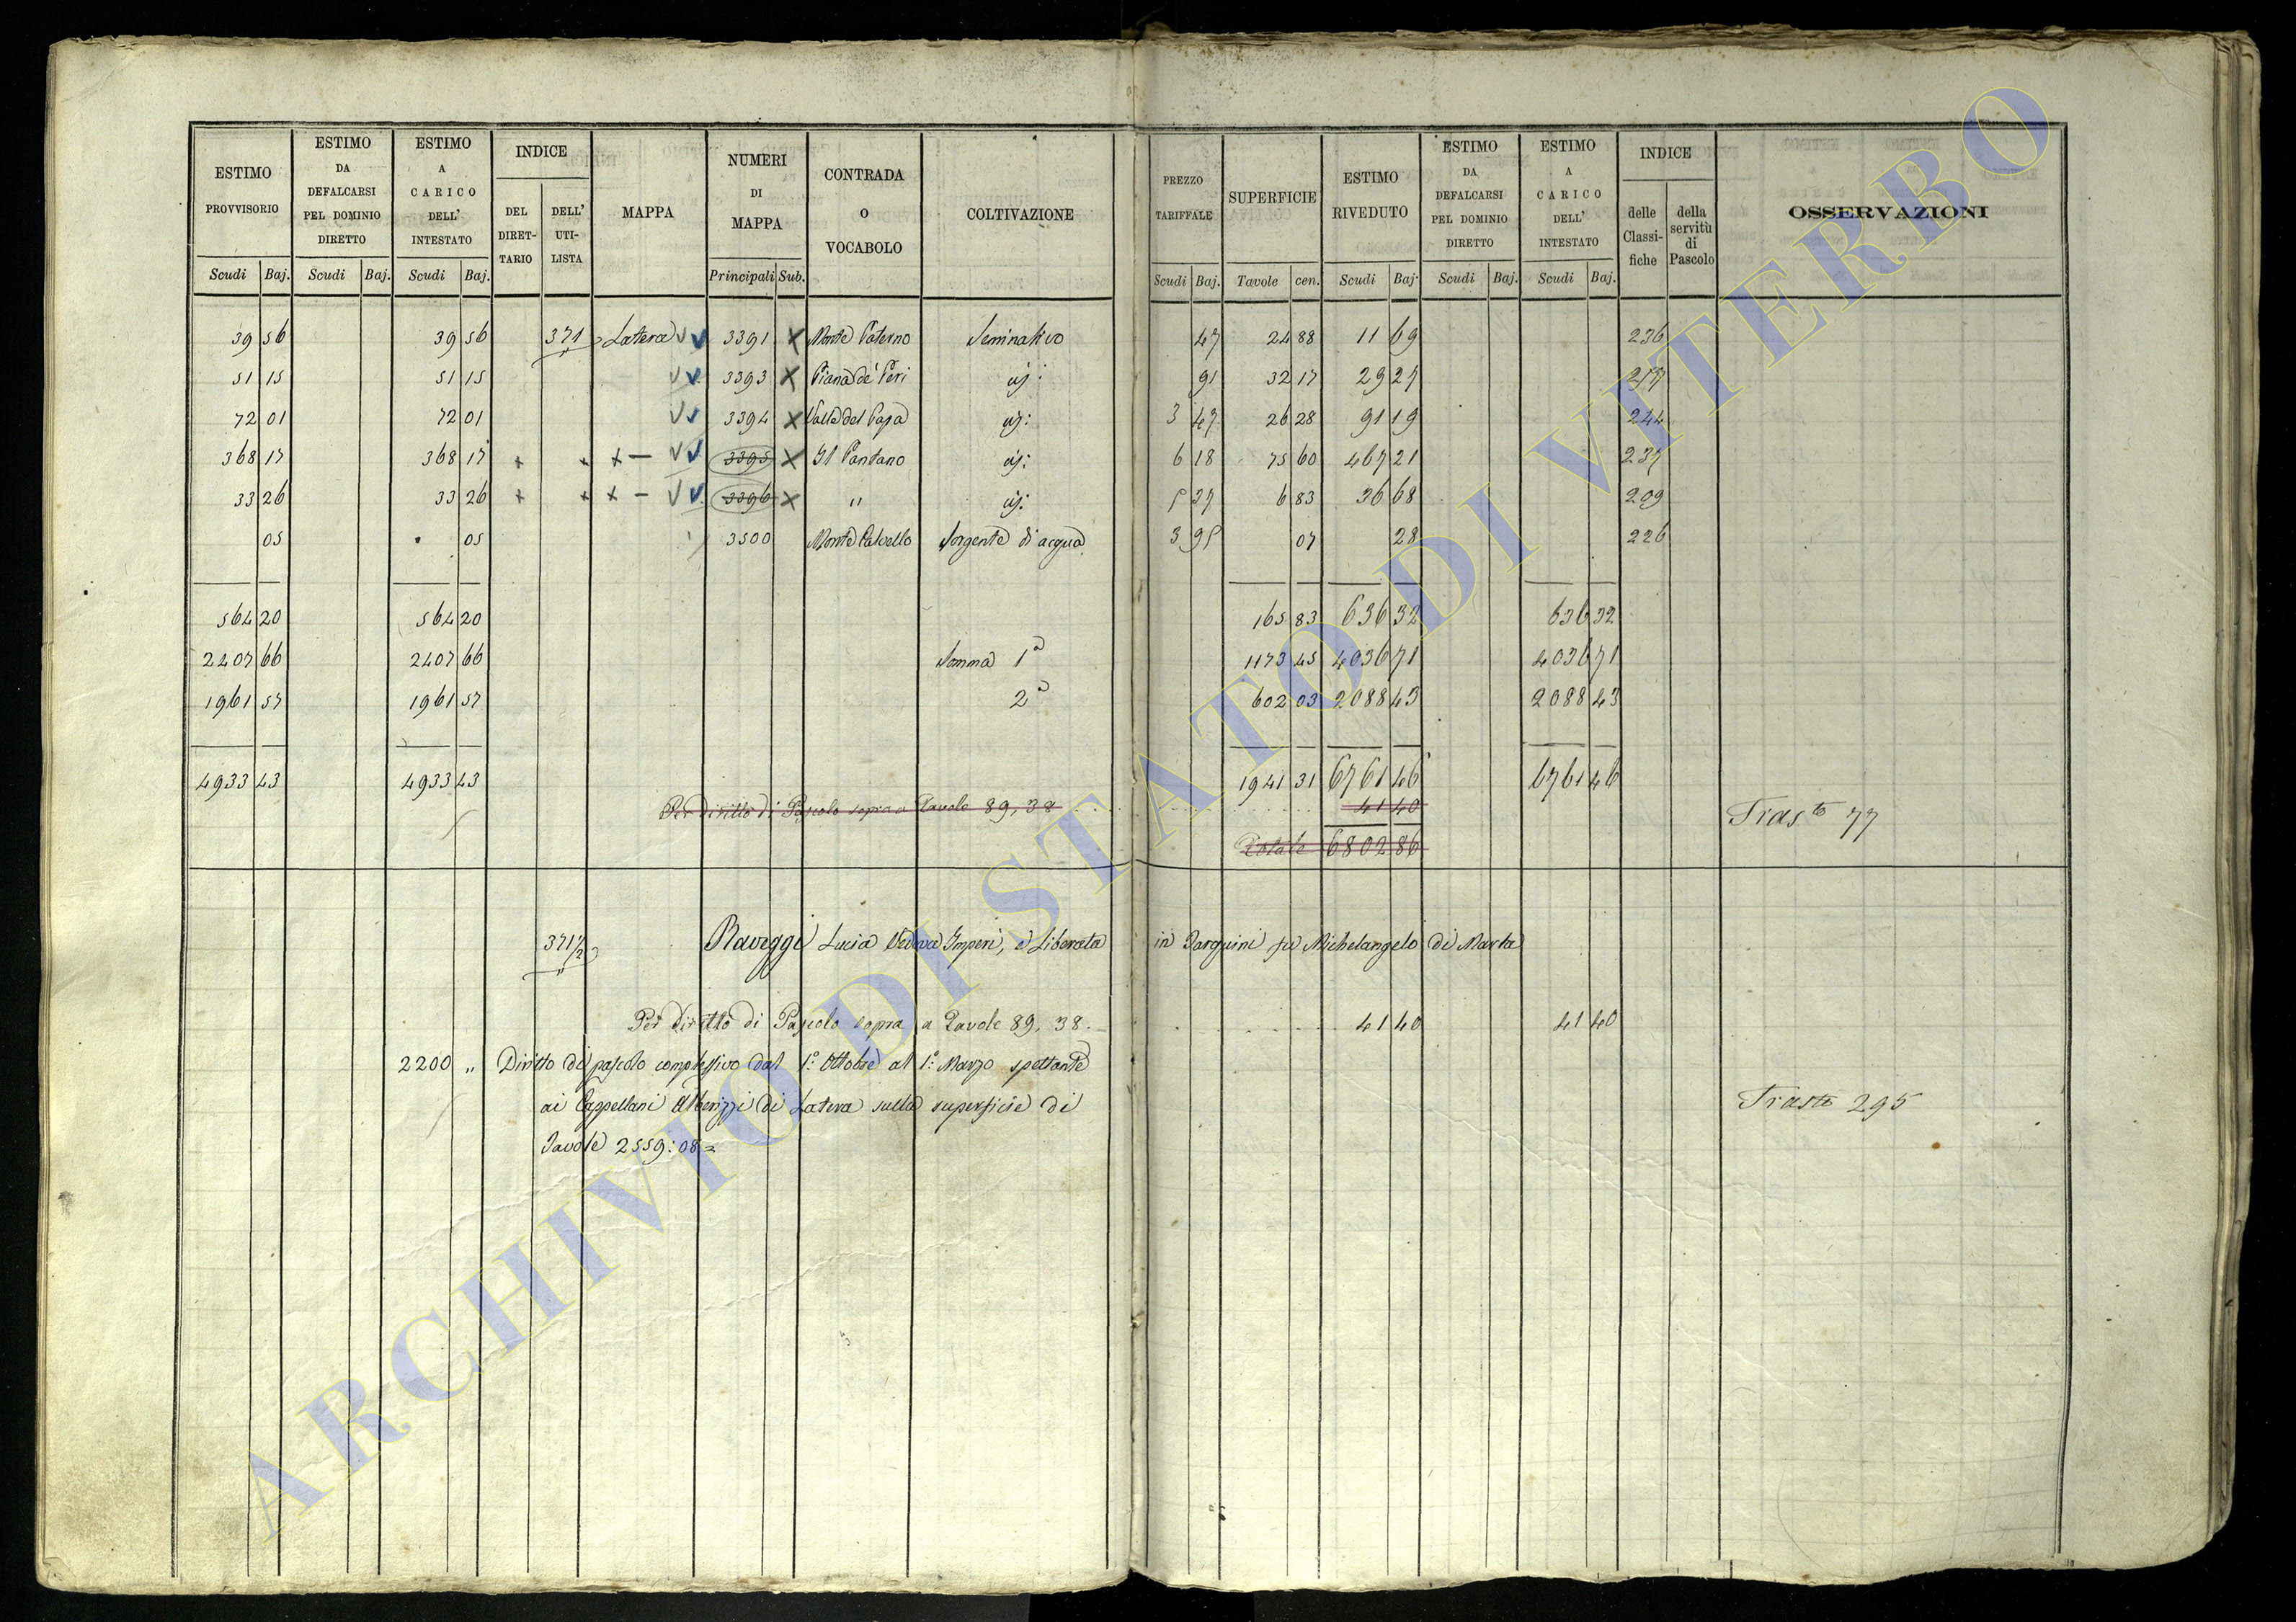 ESTIMO PROVVISORIO | ESTIMO DA DEFALCARSI PEL DOMINIO DIRETTO | ESTIMO A CARICO DELL' INTESTATO | INDICE | MAPPA | NUMERI DI MAPPA | CONTRADA O VOCABOLO | COLTIVAZIONE | PREZZO TARIFFALE | SUPERFICIE | ESTIMO RIVEDUTO | ESTIMO DA DEFALCARSI PEL DOMINIO DIRETTO | ESTIMO A CARICO DELL' INTESTATO | INDICE | OSSERVAZIONI
DEL DIRETTARIO | DELL' UTILISTA | delle Classifiche | della servitù di Pascolo
Scudi | Baj. | Scudi | Baj. | Scudi | Baj. | Principali | Sub. | Scudi | Baj. | Tavole | cen. | Scudi | Baj. | Scudi | Baj. | Scudi | Baj.
39 56 | 39 56 | 371 | Latera | 3391 | Monte Paterno | Seminativo | 47 | 24 88 | 11 69 | 236
51 15 | 51 15 | 3393 | Piana de' Peri | id: | 91 | 32 17 | 29 27
72 01 | 72 01 | 3394 | Valle del Papa | id: | 3 47 | 26 28 | 91 19 | 244
368 17 | 368 17 | 3395 | Il Pantano | id: | 6 18 | 75 60 | 467 21 | 237
33 26 | 33 26 | 3396 | " | id: | 5 37 | 6 83 | 36 68 | 209
05 | 05 | 3500 | Monte Calvello | Sorgente di acqua | 3 95 | 07 | 28 | 226
564 20 | 564 20 | 165 83 | 636 32 | 636 32
2407 66 | 2407 66 | Somma 1a | 1173 45 | 4036 71 | 4036 71
1961 57 | 1961 57 | 2a | 602 03 | 2088 43 | 2088 43
4933 43 | 4933 43 | 1941 31 | 6761 46 | 6761 46
Per diritto di Pascolo sopra a Tavole 89,38 | 41 40 | Trasto 77
Totale 6802 86
371 1/2 | Raveggi Lucia Vedova Imperi, e Liberata in Tarquini fu Michelangelo di Marta
Per diritto di Pascolo sopra a Tavole 89. 38. | 41 40 | 41 40
2200 " Diritto di pascolo complessivo dal 1.° Ottobre al 1.° Marzo spettante
ai Cappellani Alberizzi di Latera sulla superficie di | Trasto 295
Tavole 2559:08=
ARCHIVIO DI STATO DI VITERBO